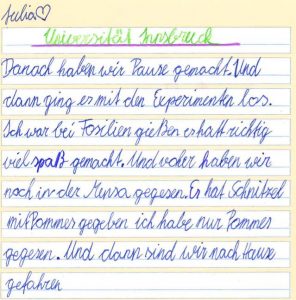 Julia♡
Universität Innsbruck
Danach haben wir Pause gemacht. Und
dann ging es mit den Experimenten los.
Ich war bei Fosilien gießen es hatt richtig
viel spaß gemacht. Und voher haben wir
noch in der Mensa gegesen. Es hat Schnitzel
mit Pommes gegeben ich habe nur Pommes
gegesen. Und dann sind wir nach Hause
gefahren